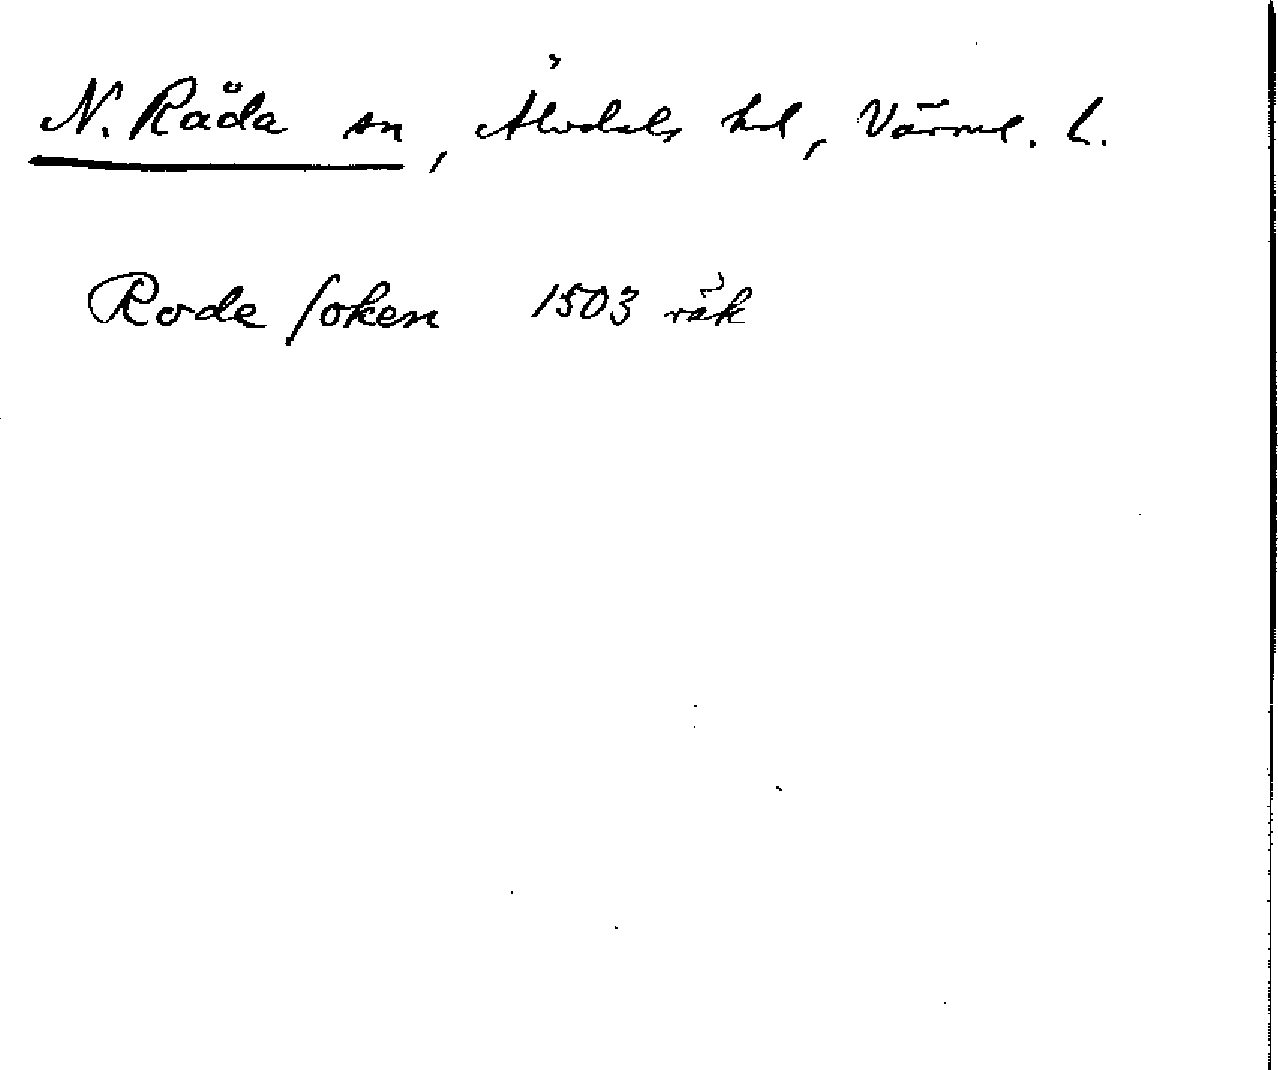 N. Råda sn, Älvdals hd, Värml. l.
Rode soken 1503 räk